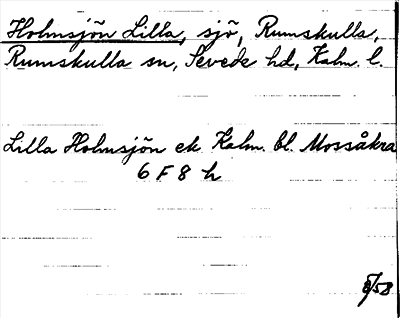 Holmsjön Lilla, sjö, Rumskulla,
Rumskulla sn, Sevede hd, Kalm. l.
Lilla Holmsjön ek Kalm. bl. Mossåkra
6 F 8 h
8/58